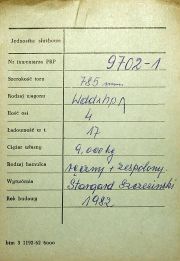 Jednostka służbowa
Nr inwentarza PKP 9702-1
Szerokość toru 785 mm
Rodzaj wagonu
Ilość osi 4
Ładowność w t 17
Ciężar własny 9.000 kg
Rodzaj hamulca ręczny + zespolony
Wytwórnia Stargard Szczeciński
Rok budowy 1982